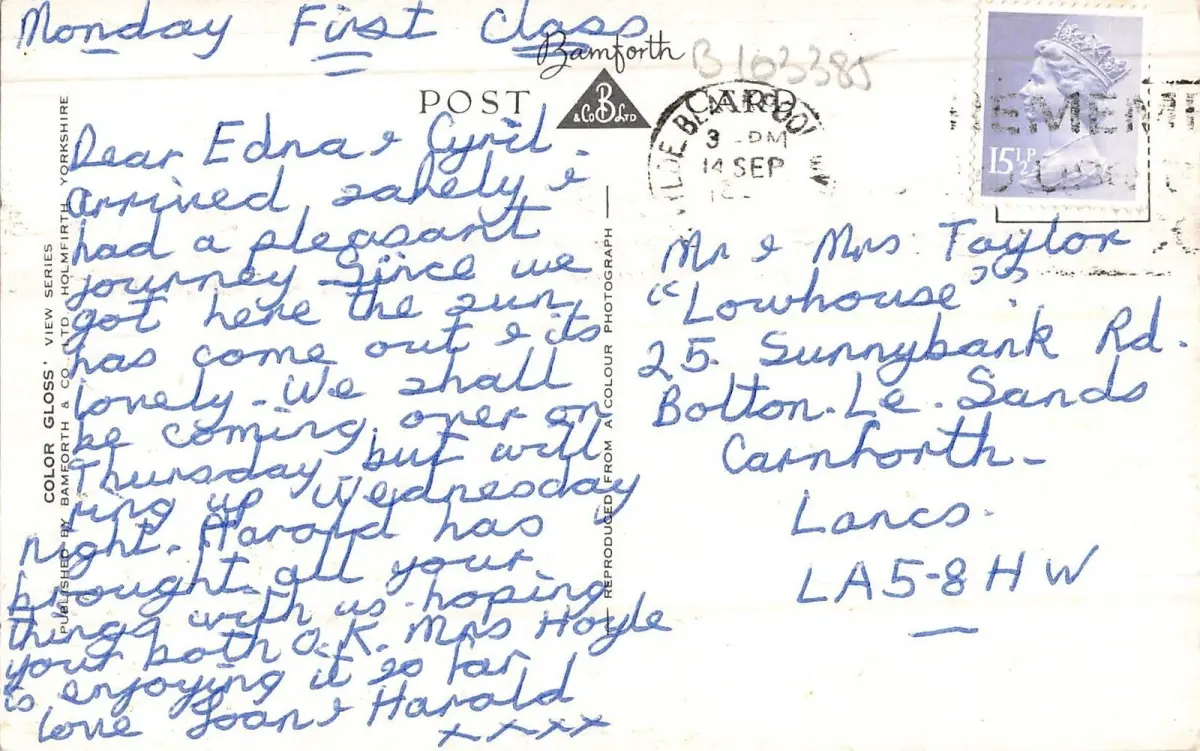 Monday First Class
Bamforth
B103385
POST CARD
B
& Co LTD
3 -PM
14 SEP
15½P
Dear Edna & Cyril.
arrived safely &
had a pleasant
journey Since we
got here the sun
has come out & its
lovely - We shall
be coming over on
Thursday, but will
ring up Wednesday
night. Harold has
brought all your
things with us - hoping
your both O.K. Mrs Hoyle
is enjoying it so far
love Joan & Harold
x x x x
COLOR GLOSS' VIEW SERIES
PUBLISHED BY BAMFORTH & CO. LTD. HOLMFIRTH YORKSHIRE
REPRODUCED FROM A COLOUR PHOTOGRAPH
Mr & Mrs Taylor
"Lowhouse"
25. Sunnybank Rd.
Bolton. Le. Sands
Carnforth -
Lancs.
LA5-8HW